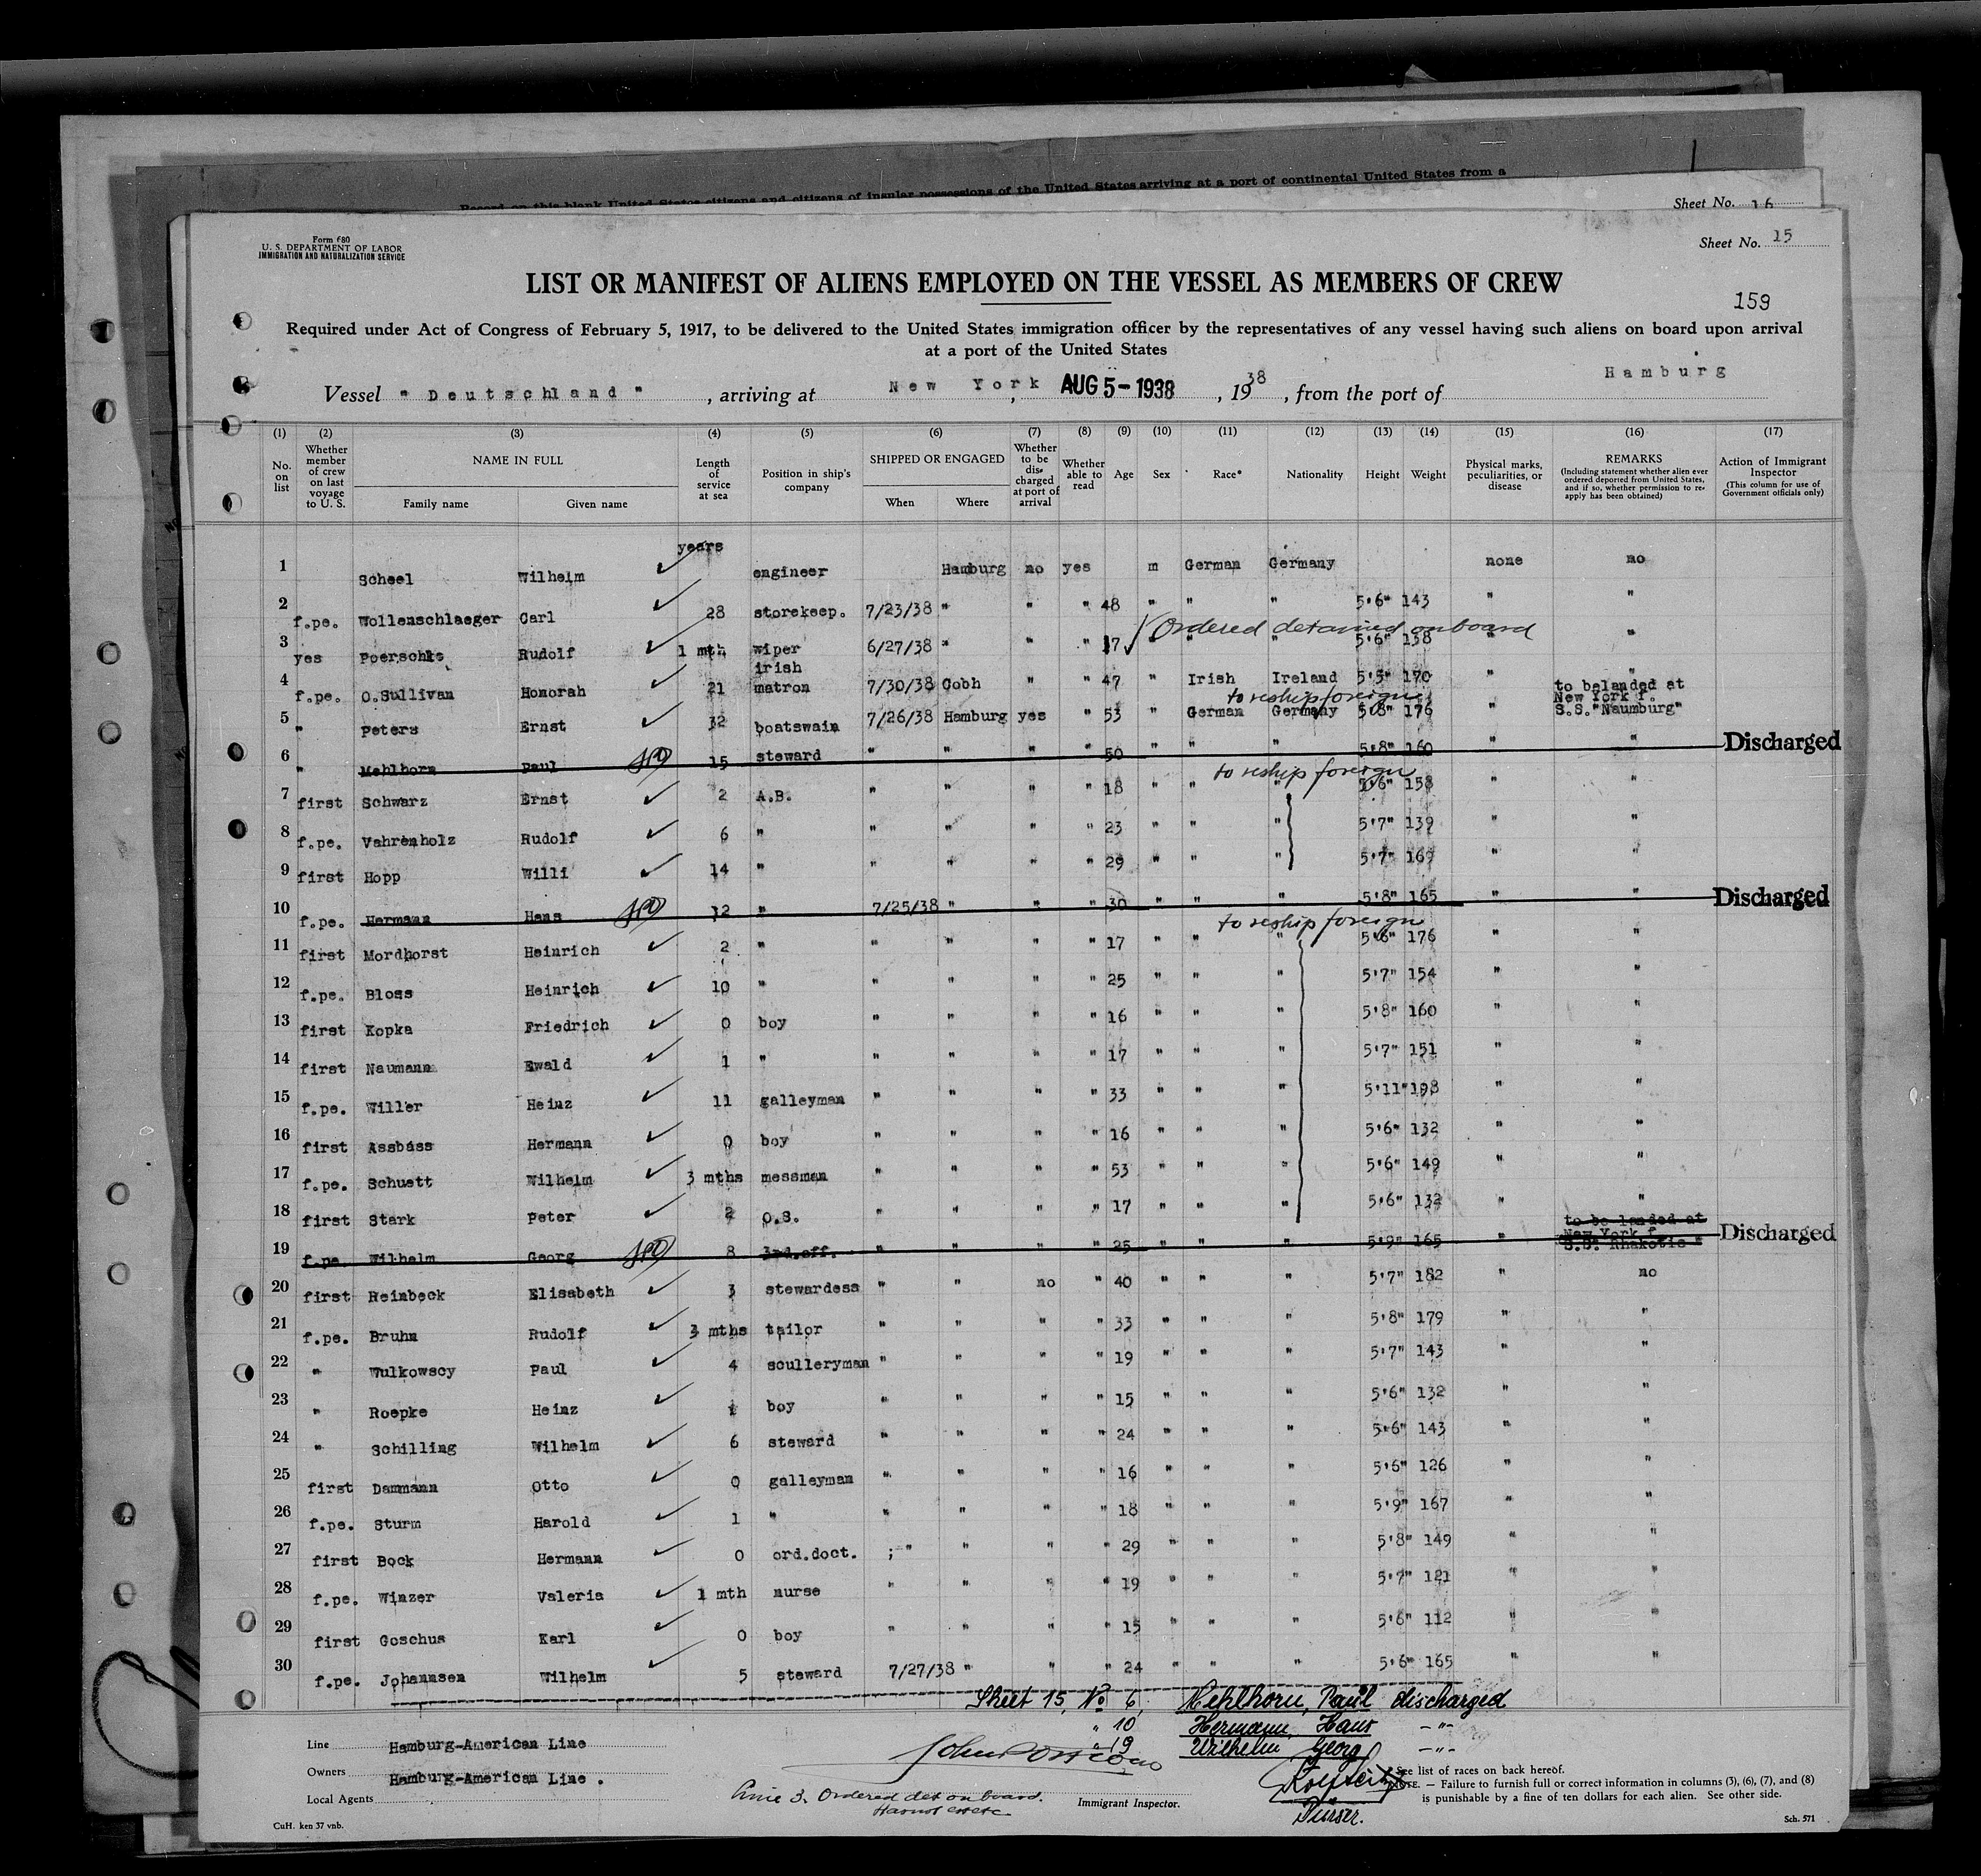 Record on this blank United States citizens and citizens of insular possessions of the United States arriving at a port of continental United States from a
Sheet No. 16
Form 680
U. S. DEPARTMENT OF LABOR
IMMIGRATION AND NATURALIZATION SERVICE
Sheet No. 15
LIST OR MANIFEST OF ALIENS EMPLOYED ON THE VESSEL AS MEMBERS OF CREW
159
Required under Act of Congress of February 5, 1917, to be delivered to the United States immigration officer by the representatives of any vessel having such aliens on board upon arrival
at a port of the United States
Vessel "Deutschland", arriving at New York, AUG 5 - 1938, 1938, from the port of Hamburg
(1) (2) (3) (4) (5) (6) (7) (8) (9) (10) (11) (12) (13) (14) (15) (16) (17)
No. on list
Whether member of crew on last voyage to U. S.
NAME IN FULL
Family name Given name
Length of service at sea
Position in ship's company
SHIPPED OR ENGAGED
When Where
Whether to be discharged at port of arrival
Whether able to read
Age
Sex
Race*
Nationality
Height
Weight
Physical marks, peculiarities, or disease
REMARKS
(Including statement whether alien ever ordered deported from United States, and if so, whether permission to reapply has been obtained)
Action of Immigrant Inspector
(This column for use of Government officials only)
years
1 Scheel Wilhelm engineer Hamburg no yes m German Germany none no
2 f.pe. Wollenschlaeger Carl 28 storekeep. 7/23/38 " " " 48 " " " 5'6" 143 " "
Ordered detained on board
3 yes Poerschke Rudolf 1 mth wiper 6/27/38 " " " 17 " " 5'6" 138 " "
4 f.pe. O.Sullivan Honorah 21 irish matron 7/30/38 Cobh " " 47 " Irish Ireland 5'5" 170 " "
to reship foreign
to belanded at
New York f.
S.S."Naumburg"
5 " Peters Ernst 32 boatswain 7/26/38 Hamburg yes " 53 " German Germany 5'8" 176 "
6 " Mehlhorn Paul 15 steward " " " " 50 " " " 5'8" 160 " " Discharged
to reship foreign
7 first Schwarz Ernst 2 A.B. " " " " 18 " " " 5'6" 158 " "
8 f.pe. Vahrenholz Rudolf 6 " " " " " 23 " " " 5'7" 139 " "
9 first Hopp Willi 14 " " " " " 29 " " " 5'7" 169 " "
10 f.pe. Hermann Hans 12 " 7/25/38 " " " 30 " " " 5'8" 165 " " Discharged
to reship foreign
11 first Mordhorst Heinrich 2 " " " " " 17 " " " 5'6" 176 " "
12 f.pe. Bloss Heinrich 10 " " " " " 25 " " " 5'7" 154 " "
13 first Kopka Friedrich 0 boy " " " " 16 " " " 5'8" 160 " "
14 first Naumann Ewald 1 " " " " " 17 " " " 5'7" 151 " "
15 f.pe. Willer Heinz 11 galleyman " " " " 33 " " " 5'11" 198 " "
16 first Assbass Hermann 0 boy " " " " 16 " " " 5'6" 132 " "
17 f.pe. Schuett Wilhelm 3 mths messman " " " " 53 " " " 5'6" 149 " "
18 first Stark Peter 2 O.S. " " " " 17 " " " 5'6" 132 " "
to be landed at
New York f.
S.S. Rhakotis "
19 f.pe. Wilhelm Georg 8 3rd.off. " " " " 25 " " " 5'9" 165 " Discharged
20 first Reinbeck Elisabeth 3 stewardess " " no " 40 " " " 5'7" 182 " no
21 f.pe. Bruhn Rudolf 3 mths tailor " " " " 33 " " " 5'8" 179 " "
22 " Wulkowscy Paul 4 sculleryman " " " " 19 " " " 5'7" 143 " "
23 " Roepke Heinz 1 boy " " " " 15 " " " 5'6" 132 " "
24 " Schilling Wilhelm 6 steward " " " " 24 " " " 5'6" 143 " "
25 first Dammann Otto 0 galleyman " " " " 16 " " " 5'6" 126 " "
26 f.pe. Sturm Harold 1 " " " " " 18 " " " 5'9" 167 " "
27 first Bock Hermann 0 ord.doct. ; " " " " 29 " " " 5'8" 149 " "
28 f.pe. Winzer Valeria 1 mth nurse " " " " 19 " " " 5'7" 121 " "
29 first Goschus Karl 0 boy " " " " 15 " " " 5'6" 112 " "
30 f.pe. Johannsen Wilhelm 5 steward 7/27/38 " " " 24 " " " 5'6" 165 " "
Sheet 15, No 6, Mehlhorn, Paul discharged
" 10 Hermann, Hans -"-
" 19 Wilhelm Georg -"-
Line Hamburg-American Line
Owners Hamburg-American Line .
Local Agents
Line 3. Ordered det on board.
Immigrant Inspector.
Purser.
* See list of races on back hereof.
NOTE. — Failure to furnish full or correct information in columns (3), (6), (7), and (8)
is punishable by a fine of ten dollars for each alien. See other side.
CuH. ken 37 vnb.
Sch. 571